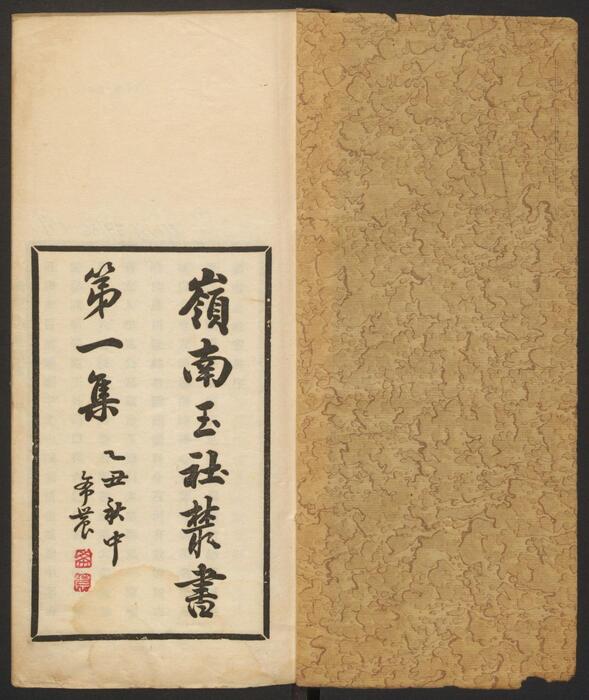 嶺南玉社叢書
第一集
乙丑秋中
希㠭